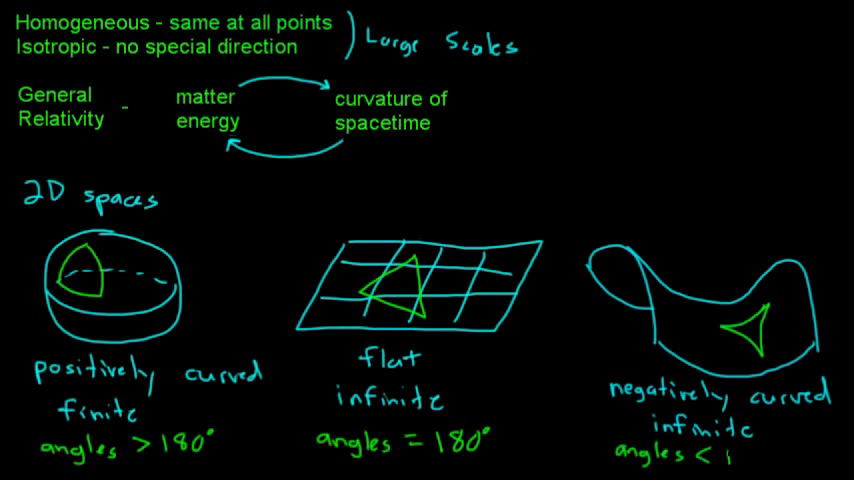 Homogeneous - same at all points
Isotropic - no special direction
Large Scales
General Relativity - matter energy
curvature of spacetime
2D spaces
positively curved
finite
angles > 180°
flat
infinite
angles = 180°
negatively curved
infinite
angles < 1